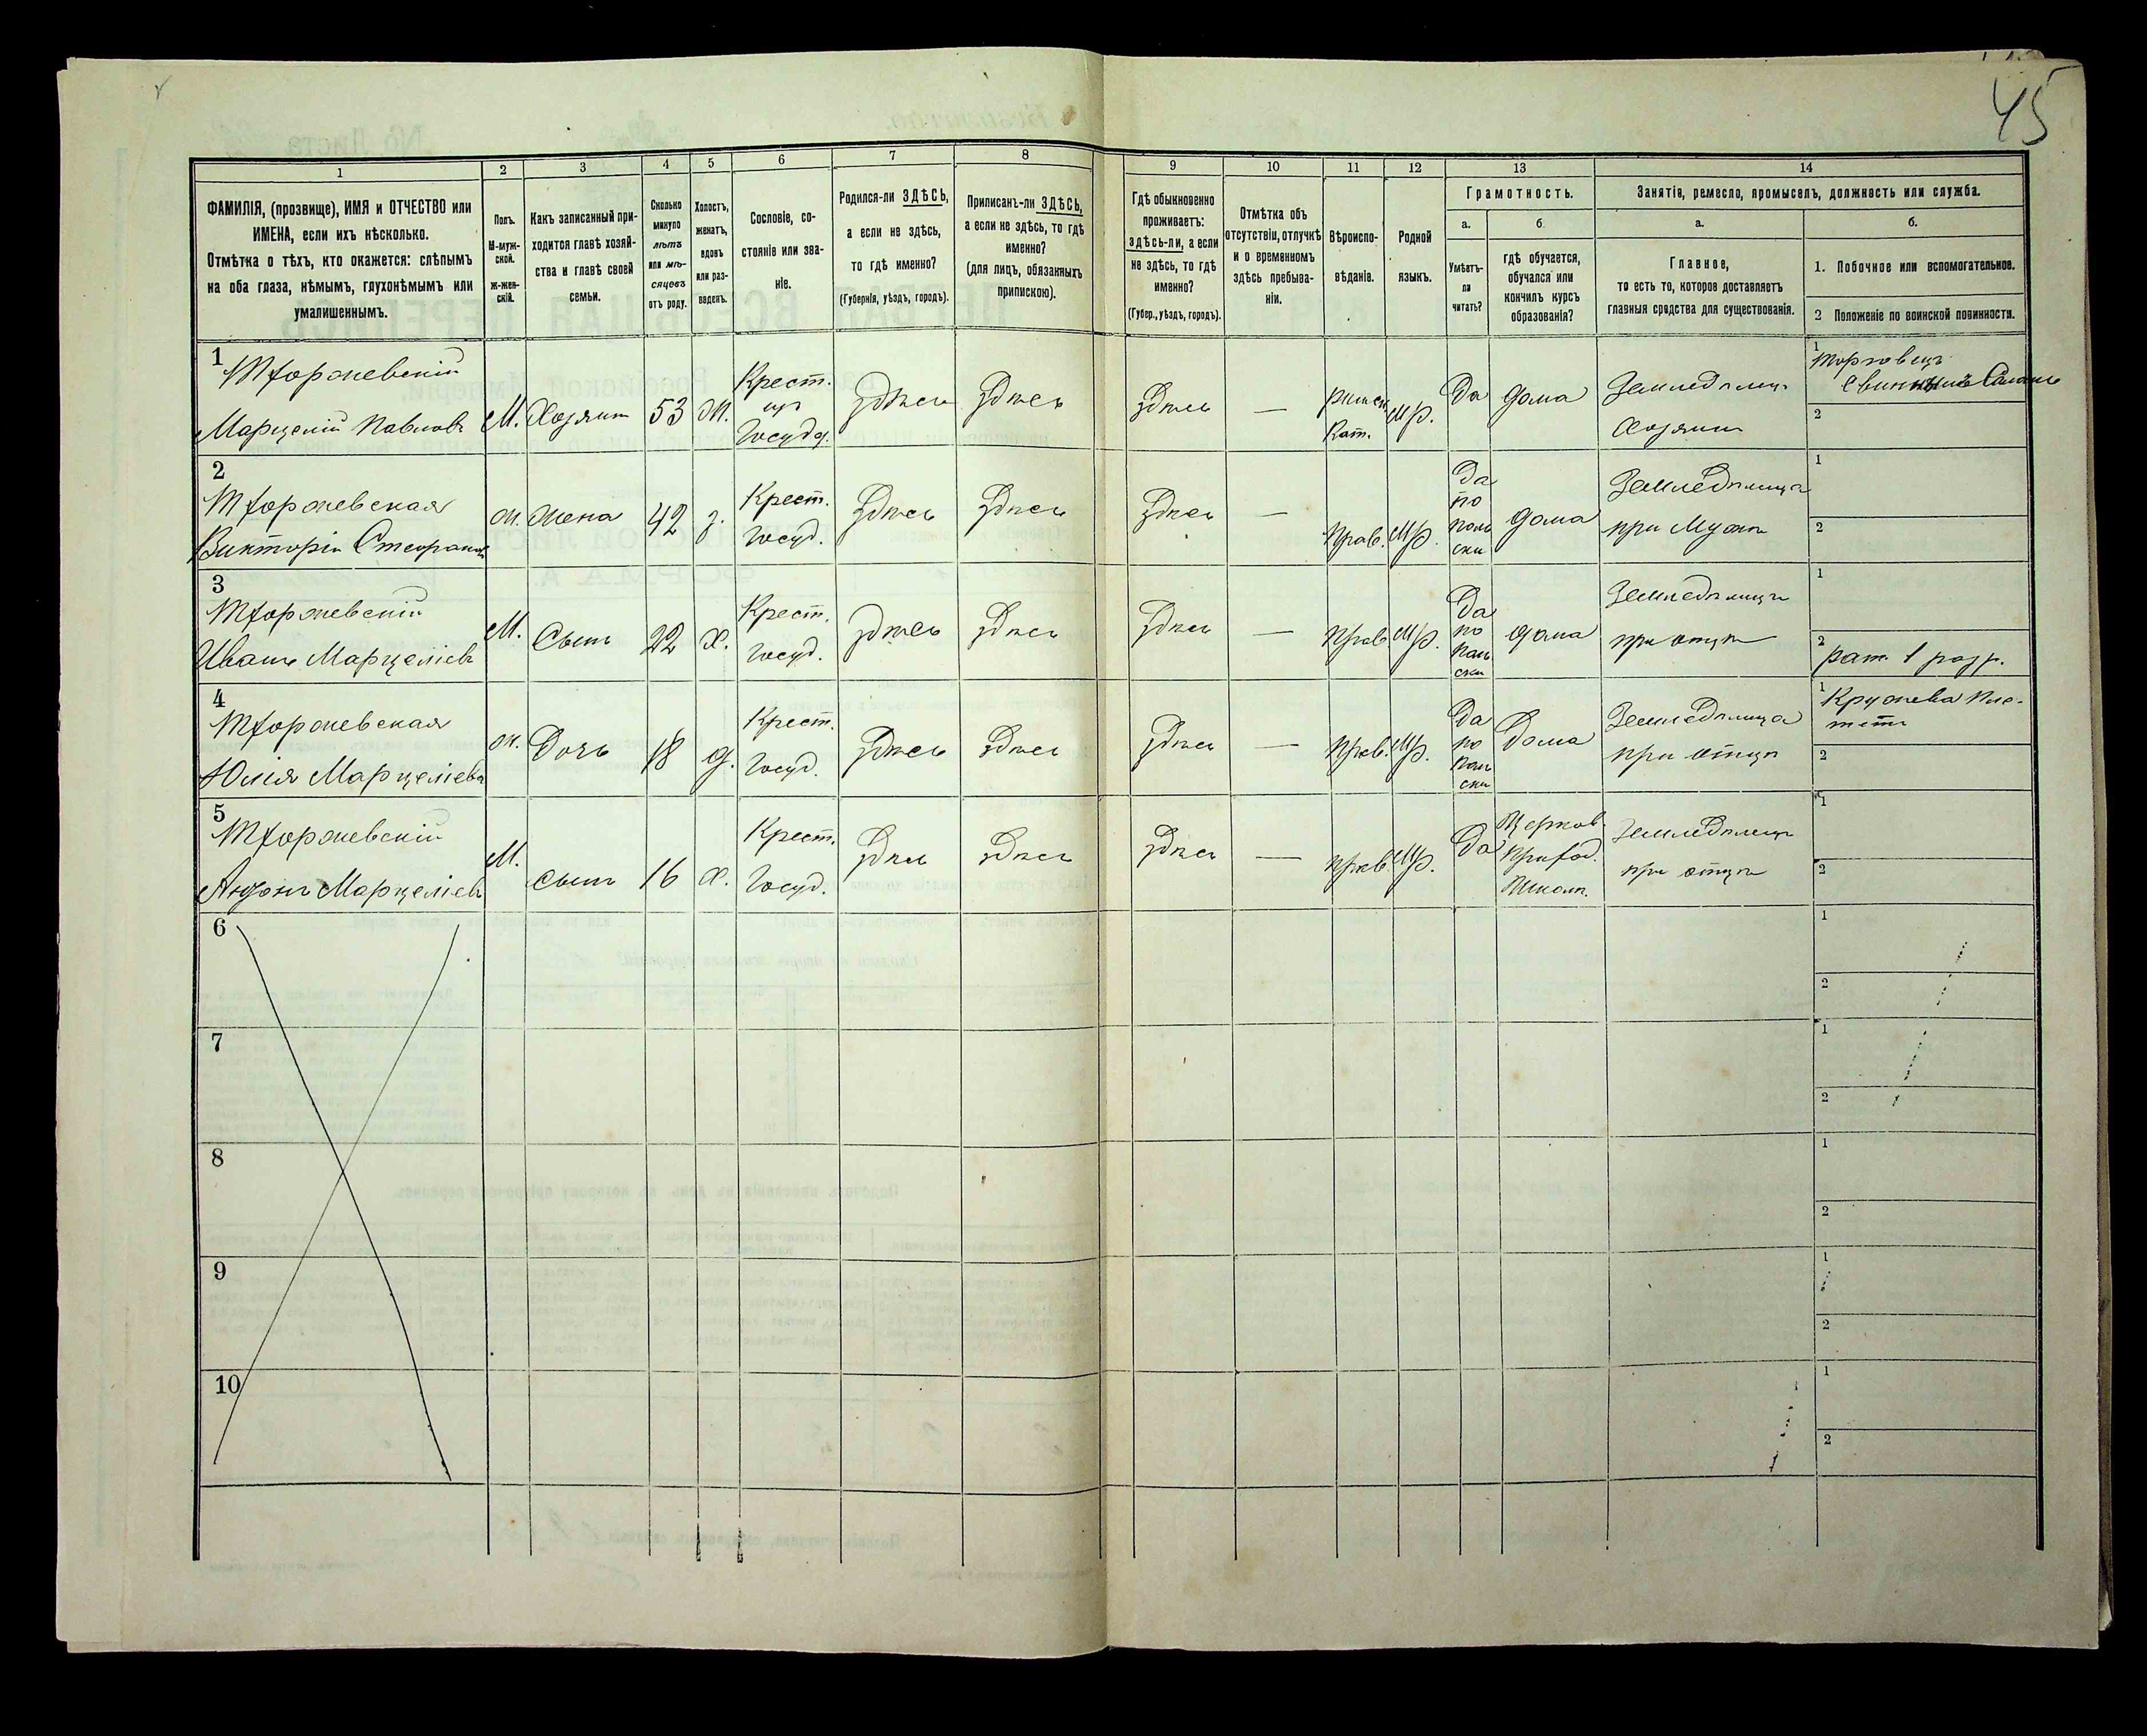 45
1
2
3
4
5
6
7
8
9
10
11
12
13
14
ФАМИЛІЯ, (прозвище), ИМЯ и ОТЧЕСТВО или
ИМЕНА, если ихъ нѣсколько.
Отмѣтка о тѣхъ, кто окажется: слѣпымъ
на оба глаза, нѣмымъ, глухонѣмымъ или
умалишеннымъ.
Полъ.
М-муж-
ской.
Ж-жен-
скій.
Какъ записанный при-
ходится главѣ хозяй-
ства и главѣ своей
семьи.
Сколько
минуло
лѣтъ
или мѣ-
сяцевъ
отъ роду.
Холостъ,
женатъ,
вдовъ
или раз-
веденъ.
Сословіе, со-
стояніе или зва-
ніе.
Родился-ли ЗДѢСЬ,
а если не здѣсь,
то гдѣ именно?
(Губернія, уѣздъ, городъ).
Приписанъ-ли ЗДѢСЬ,
а если не здѣсь, то гдѣ
именно?
(для лицъ, обязанныхъ
припискою).
Гдѣ обыкновенно
проживаетъ:
здѣсь-ли, а если
не здѣсь, то гдѣ
именно?
(Губер., уѣздъ, городъ).
Отмѣтка объ
отсутствіи, отлучкѣ
и о временномъ
здѣсь пребыва-
ніи.
Вѣроиспо-
вѣданіе.
Родной
языкъ.
Грамотность.
а.
б
Умѣетъ-
ли
читать?
гдѣ обучается,
обучался или
кончилъ курсъ
образованія?
Занятіе, ремесло, промыселъ, должность или служба.
а.
б.
Главное,
то есть то, которое доставляетъ
главныя средства для существованія.
1. Побочное или вспомогательное.
2 Положеніе по воинской повинности.
1
Марцелій Павловъ
М.
Хозяинъ
53
ж.
Крест.
изъ
Госуд.
Здѣсь
Здѣсь
Здѣсь
—
Кат.
Да
дома
Земледѣлецъ
Хозяинъ
1
Торговецъ
2
2
ж.
Жена
42
з.
Крест.
Госуд.
Здѣсь
Здѣсь
Здѣсь
—
Прав.
Да
по
поль
ски
дома
Земледѣлица
при Мужѣ
1
2
3
Иванъ Марцеліевъ
М.
Сынъ
22
Х.
Крест.
Госуд.
Здѣсь
Здѣсь
Здѣсь
—
Прав.
Да
по
поль
ски
дома
при отцѣ
1
2
рат. 1 разр.
4
Юлія Марцеліева
ж.
Дочь
18
д.
Крест.
Госуд.
Здѣсь
Здѣсь
Здѣсь
—
Прав.
Да
по
поль
ски
Дома
Земледѣлица
при отцѣ
1
Кружева Пле-
2
5
М.
Сынъ
16
Х.
Крест.
Госуд.
Здѣсь
Здѣсь
Здѣсь
—
Прав.
Да
Церков.
приход.
Школѣ.
Земледѣлецъ
при отцѣ
1
2
6
1
2
7
1
2
8
1
2
9
1
2
10
1
2